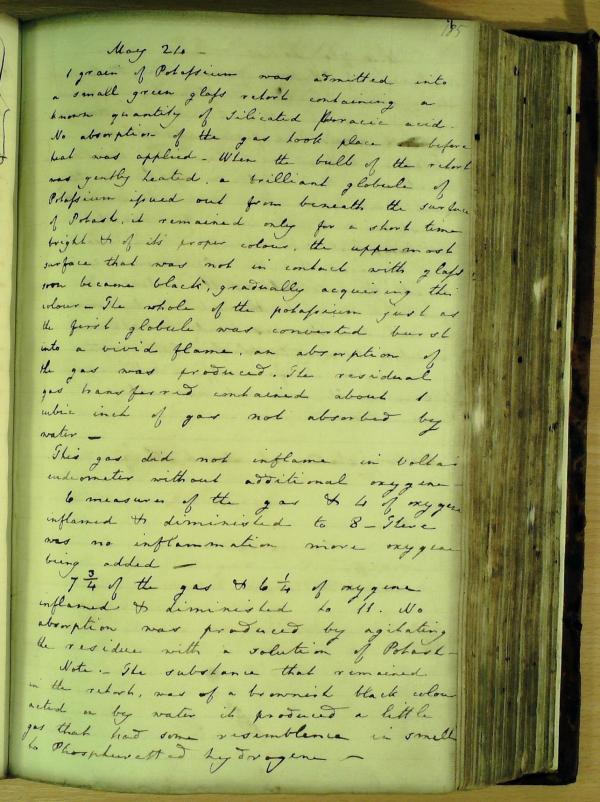 185
May 26 -
1 grain of Potassium was admitted into
a small green glass retort containing a
known quantity of Silicated fluoric acid.
No absorption of the gas took place before
heat was applied - When the bulb of the retort
was gently heated, a brilliant globule of
Potassium issued out from beneath the surface
of Potash, it remained only for a short time
bright & of its proper colour, the uppermost
surface that was not in contact with glass
soon became black, gradually acquiring this
colour - The whole of the potassium just as
the first globule was converted burst
into a vivid flame, an absorption of
the gas was produced. The residual
gas transferred contained about 1
cubic inch of gas not absorbed by
water -
This gas did not inflame in Volta's
eudiometer without additional oxygene -
6 measures of the gas & 4 of oxygene
inflamed & diminished to 8 - There
was no inflammation more oxygene
being added -
7 3/4 of the gas & 6 1/4 of oxygene
inflamed & diminished to 11. No
absorption was produced by agitating
the residue with a solution of Potash -
Note - The substance that remained
in the retort, was of a brownish black colour
acted on by water it produced a little
gas that had some resemblance in smell
to Phosphuretted hydrogene -